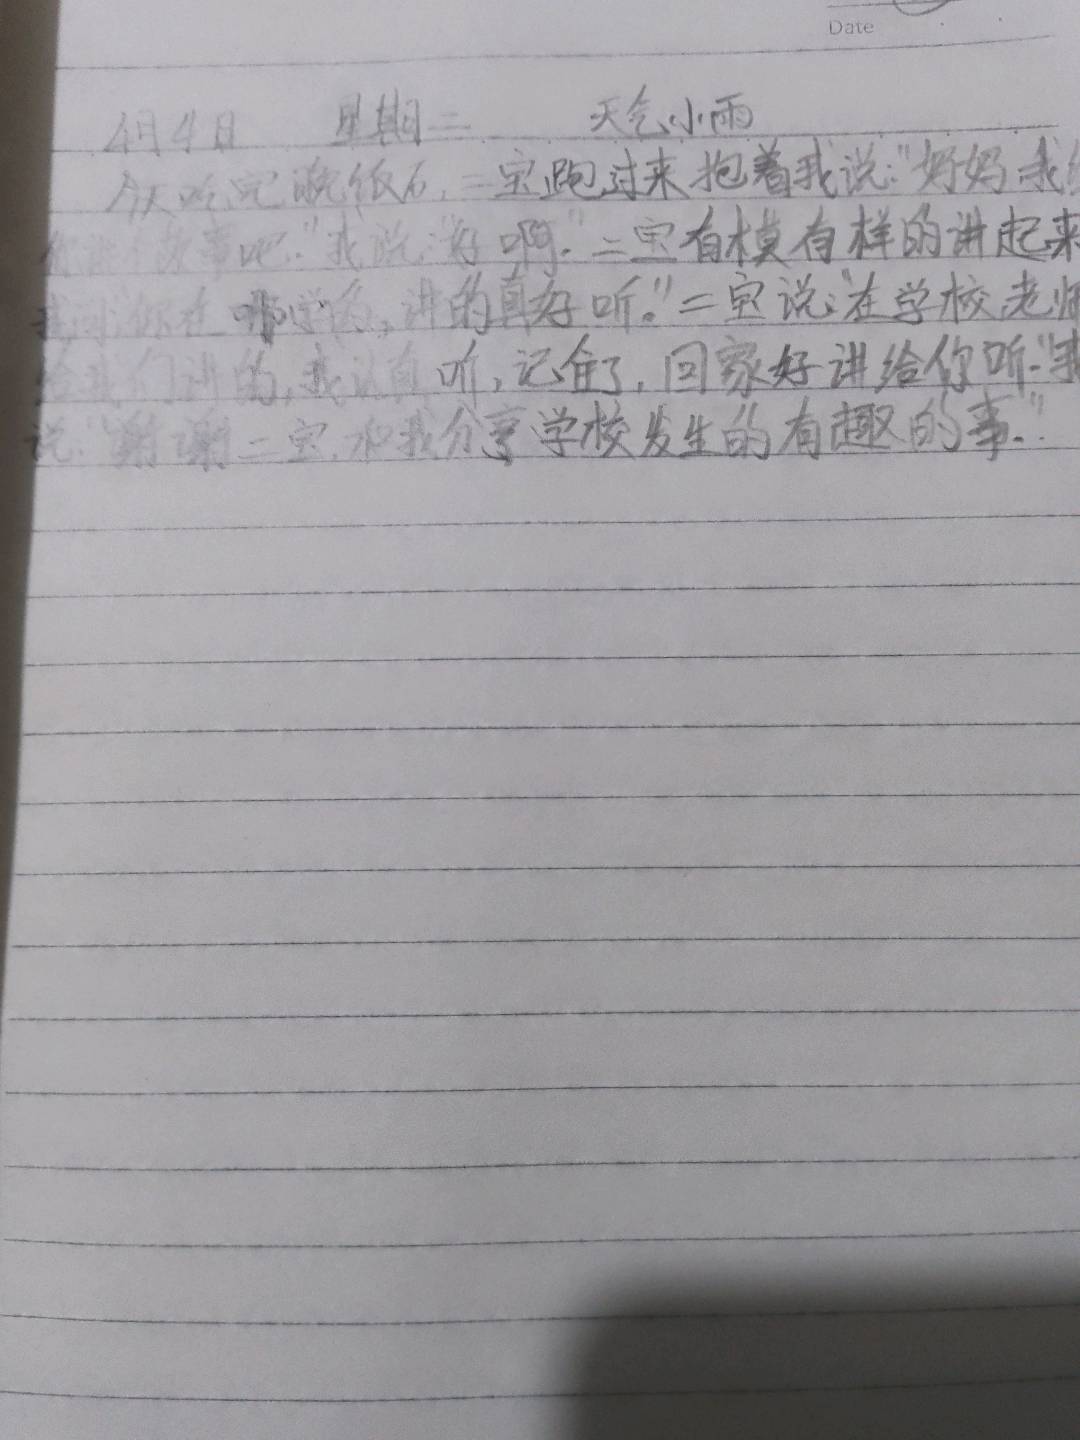 Date
4月4日 星期二 天气小雨
今天吃完晚饭后,二宝跑过来抱着我说:"妈妈 我给
你讲个故事吧."我说:"好啊."二宝有模有样的讲起来
我问"你在哪学的,讲的真好听."二宝说:"在学校老师
给我们讲的,我认真听,记住了,回家好讲给你听."我
说:"谢谢二宝.和我分享学校发生的有趣的事."